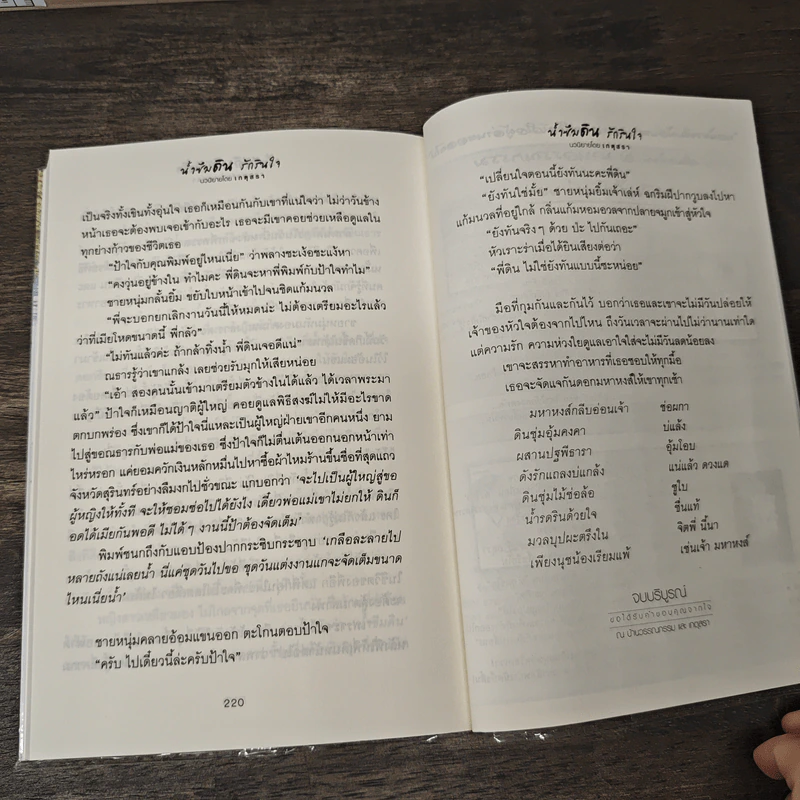 น้ำซึมดิน รักรินใจ
นวนิยายโดย เกตุสรา
เป็นจริงทั้งเขินทั้งอุ่นใจ เธอก็เหมือนกันกับเขาที่แน่ใจว่า ไม่ว่าวันข้าง
หน้าเธอจะต้องพบเจอเข้ากับอะไร เธอจะมีเขาคอยช่วยเหลือดูแลใน
ทุกย่างก้าวของชีวิตเธอ
“ป้าใจกับคุณพิมพ์อยู่ไหนเนี่ย” ว่าพลางชะเง้อชะแง้หา
“คงวุ่นอยู่ข้างใน ทำไมคะ พี่ดินจะหาพี่พิมพ์กับป้าใจทำไม”
ชายหนุ่มกลั้นยิ้ม ขยับใบหน้าเข้าไปจนชิดแก้มนวล
“พี่จะบอกยกเลิกงานวันนี้ให้หมดน่ะ ไม่ต้องเตรียมอะไรแล้ว
ว่าที่เมียโหดขนาดนี้ พี่กลัว”
“ไม่ทันแล้วค่ะ ถ้ากล้าทิ้งน้ำ พี่ดินเจอดีแน่”
ณธารรู้ว่าเขาแกล้ง เลยช่วยรับมุกให้เสียหน่อย
“เอ้า สองคนนั้นเข้ามาเตรียมตัวข้างในได้แล้ว ได้เวลาพระมา
แล้ว” ป้าใจก็เหมือนญาติผู้ใหญ่ คอยดูแลพิธีสงฆ์ไม่ให้มีอะไรขาด
ตกบกพร่อง ซึ่งเขาก็ได้ป้าใจนี่แหละเป็นผู้ใหญ่ฝ่ายเขาอีกคนหนึ่ง ยาม
ไปสู่ขอณธารกับพ่อแม่ของเธอ ซึ่งป้าใจก็ไม่ตื่นเต้นออกนอกหน้าเท่า
ไหร่หรอก แค่ยอมควักเงินหลักหมื่นไปหาซื้อผ้าไหมร้านขึ้นชื่อที่สุดแถว
จังหวัดสุรินทร์อย่างลืมงกไปชั่วขณะ แกบอกว่า ‘จะไปเป็นผู้ใหญ่สู่ขอ
ผู้หญิงให้ทั้งที จะให้ซอมซ่อไปได้ยังไง เดี๋ยวพ่อแม่เขาไม่ยกให้ ดินก็
อดได้เมียกันพอดี ไม่ได้ๆ งานนี้ป้าต้องจัดเต็ม’
พิมพ์ชนกถึงกับแอบป้องปากกระซิบกระซาบ ‘เกลือละลายไป
หลายถังแน่เลยน้ำ นี่แค่ชุดวันไปขอ ชุดวันแต่งงานแกจะจัดเต็มขนาด
ไหนเนี่ยน้ำ’
ชายหนุ่มคลายอ้อมแขนออก ตะโกนตอบป้าใจ
“ครับ ไปเดี๋ยวนี้ล่ะครับป้าใจ”
220
น้ำซึมดิน รักรินใจ
นวนิยายโดย เกตุสรา
“เปลี่ยนใจตอนนี้ยังทันนะคะพี่ดิน”
“ยังทันใช่มั้ย” ชายหนุ่มยิ้มเจ้าเล่ห์ ฉกริมฝีปากวูบลงไปหา
แก้มนวลที่อยู่ใกล้ กลิ่นแก้มหอมอวลจากปลายจมูกเข้าสู่หัวใจ
“ยังทันจริงๆ ด้วย ปะ ไปกันเถอะ”
หัวเราะร่าเมื่อได้ยินเสียงต่อว่า
“พี่ดิน ไม่ใช่ยังทันแบบนี้ซะหน่อย”
มือที่กุมกันและกันไว้ บอกว่าเธอและเขาจะไม่มีวันปล่อยให้
เจ้าของหัวใจต้องจากไปไหน ถึงวันเวลาจะผ่านไปไม่ว่านานเท่าใด
แต่ความรัก ความห่วงใยดูแลเอาใจใส่จะไม่มีวันลดน้อยลง
เขาจะสรรหาทำอาหารที่เธอชอบให้ทุกมื้อ
เธอจะจัดแจกันดอกมหาหงส์ให้เขาทุกเช้า
มหาหงส์กลีบอ่อนเจ้า ช่อผกา
ดินชุ่มอุ้มคงคา บ่แล้ง
ผสานปฐพีธารา อุ้มโอบ
ดังรักแถลงบ่แกล้ง แน่แล้ว ดวงแด
ดินชุ่มไม้ช่อล้อ ชูใบ
น้ำรดรินด้วยใจ ชื่นแท้
มวลบุปผะตรึงใน จิตพี่ นี้นา
เพียงนุชน้องเรียมแพ้ เช่นเจ้า มหาหงส์
จบบริบูรณ์
ขอได้รับคำขอบคุณจากใจ
ณ บ้านวรรณกรรม และ เกตุสรา